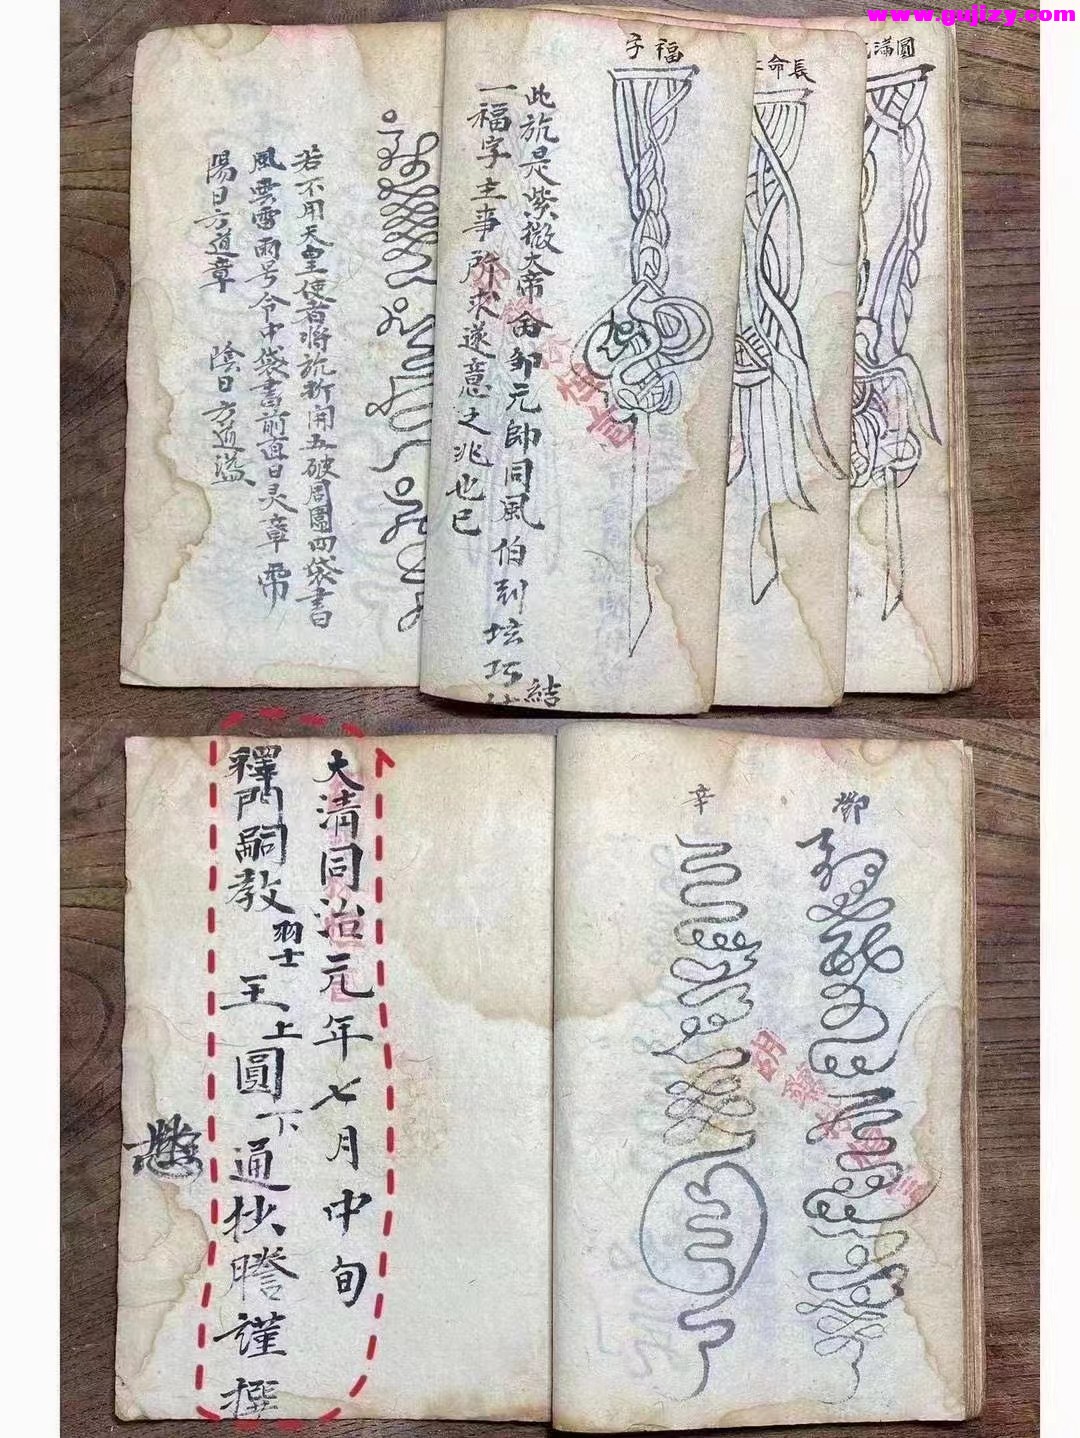 www.gujizy.com
圓滿
長命
福子
此旂是紫微大帝命鄒元帥同風伯到壇巧結
一福字主事所求遂意之兆也已
若不用天皇使者將旂折開五破周圍四袋書
風雲雷雨号令中袋書前直日灵章 帶
陽日方道章 陰日方道溢
大清同治元年七月中旬
釋門嗣教羽士王上圓下通抄謄謹撰
御
辛